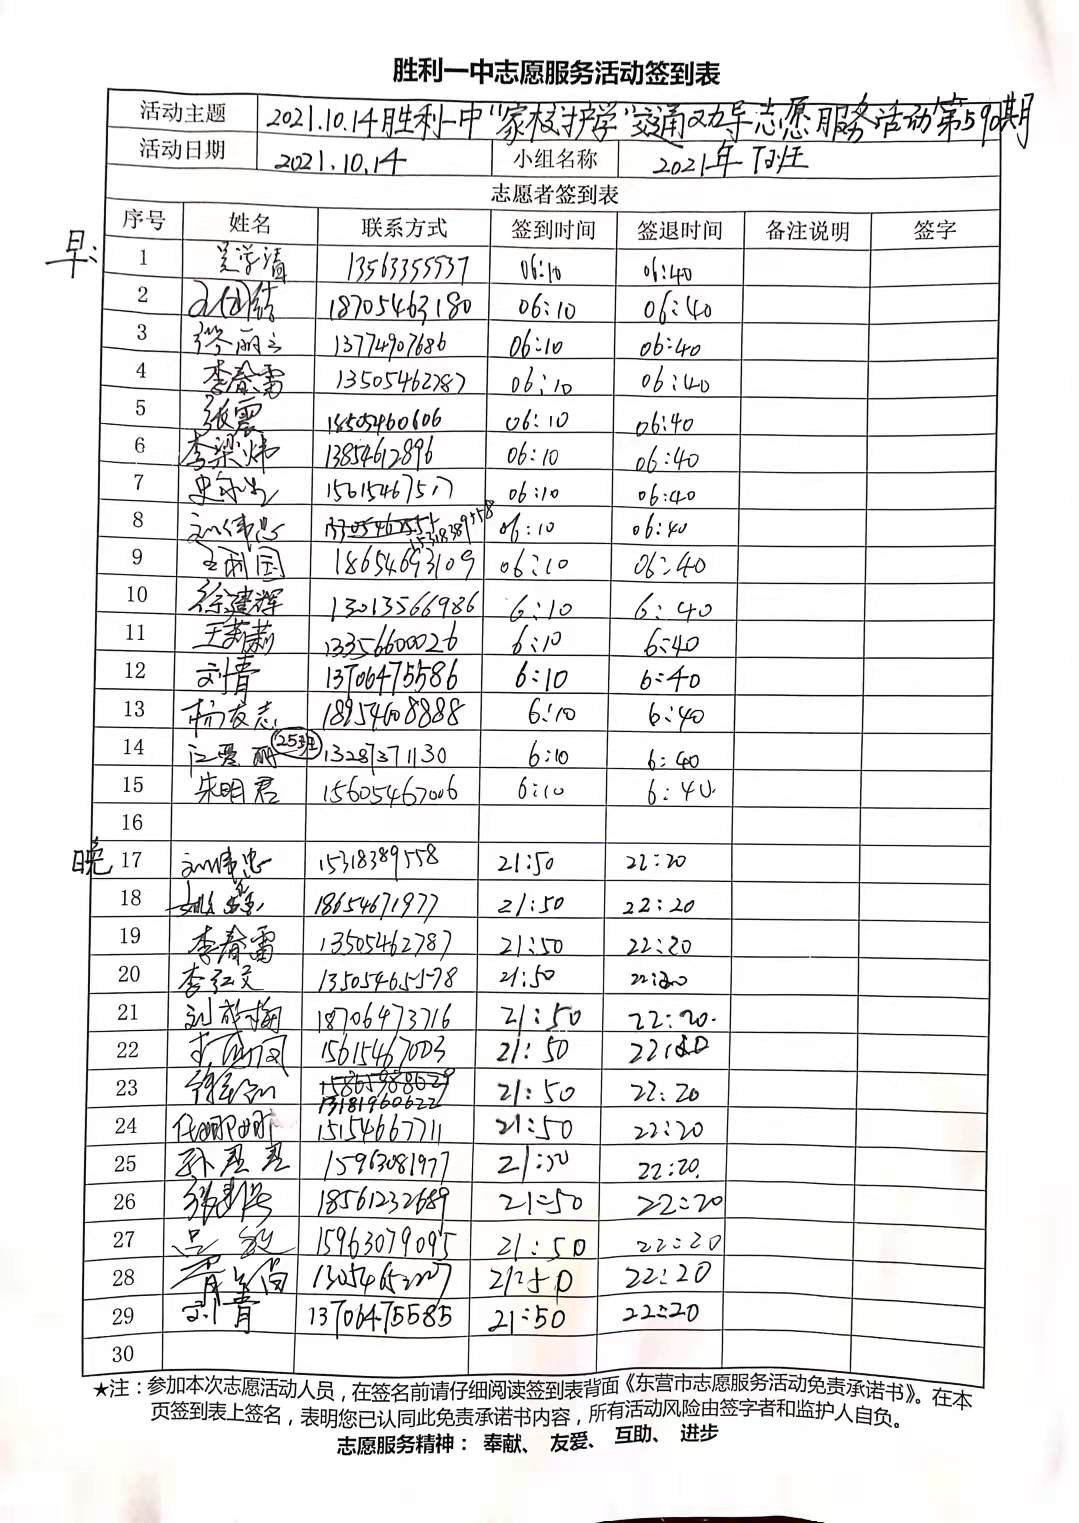 胜利一中志愿服务活动签到表
活动主题 2021.10.14胜利一中"家校护学"交通劝导志愿服务活动第590期
活动日期 2021.10.14 小组名称 2021年
志愿者签到表
序号 姓名 联系方式 签到时间 签退时间 备注说明 签字
早:
1 吴学清 13563355537 06:10 06:40
2 18705463180 06:10 06:40
3 张丽云 13774907686 06:10 06:40
4 李春雷 13505462787 06:10 06:40
5 张震 18505460606 06:10 06:40
6 李梁炜 13854612896 06:10 06:40
7 15615467517 06:10 06:40
8 刘伟忠 15318389558 06:10 06:40
9 王利国 18654693109 06:10 06:40
10 徐建辉 13013566986 6:10 6:40
11 王莉莉 13356600026 6:10 6:40
12 刘青 13706475586 6:10 6:40
13 杨友志 18954608888 6:10 6:40
14 江爱丽 25班 13287371130 6:10 6:40
15 朱明君 15605467006 6:10 6:40
16
晚 17 刘伟忠 15318389558 21:50 22:20
18 18654671977 21:50 22:20
19 李春雷 13505462787 21:50 22:20
20 李红文 13505465578 21:50 22:20
21 刘 梅 18706473716 21:50 22:20.
22 15615467003 21:50 22:20
23 13181960622 21:50 22:20
24 任娜娜 15154667711 21:50 22:20
25 孙君君 15963081977 21:50 22:20.
26 张建 18561232689 21:50 22:20
27 吕敏 15963079095 21:50 22:20
28 21:50 22:20
29 刘青 13706475585 21:50 22:20
30
★注：参加本次志愿活动人员，在签名前请仔细阅读签到表背面《东营市志愿服务活动免责承诺书》。在本
页签到表上签名，表明您已认同此免责承诺书内容，所有活动风险由签字者和监护人自负。
志愿服务精神： 奉献、 友爱、 互助、 进步